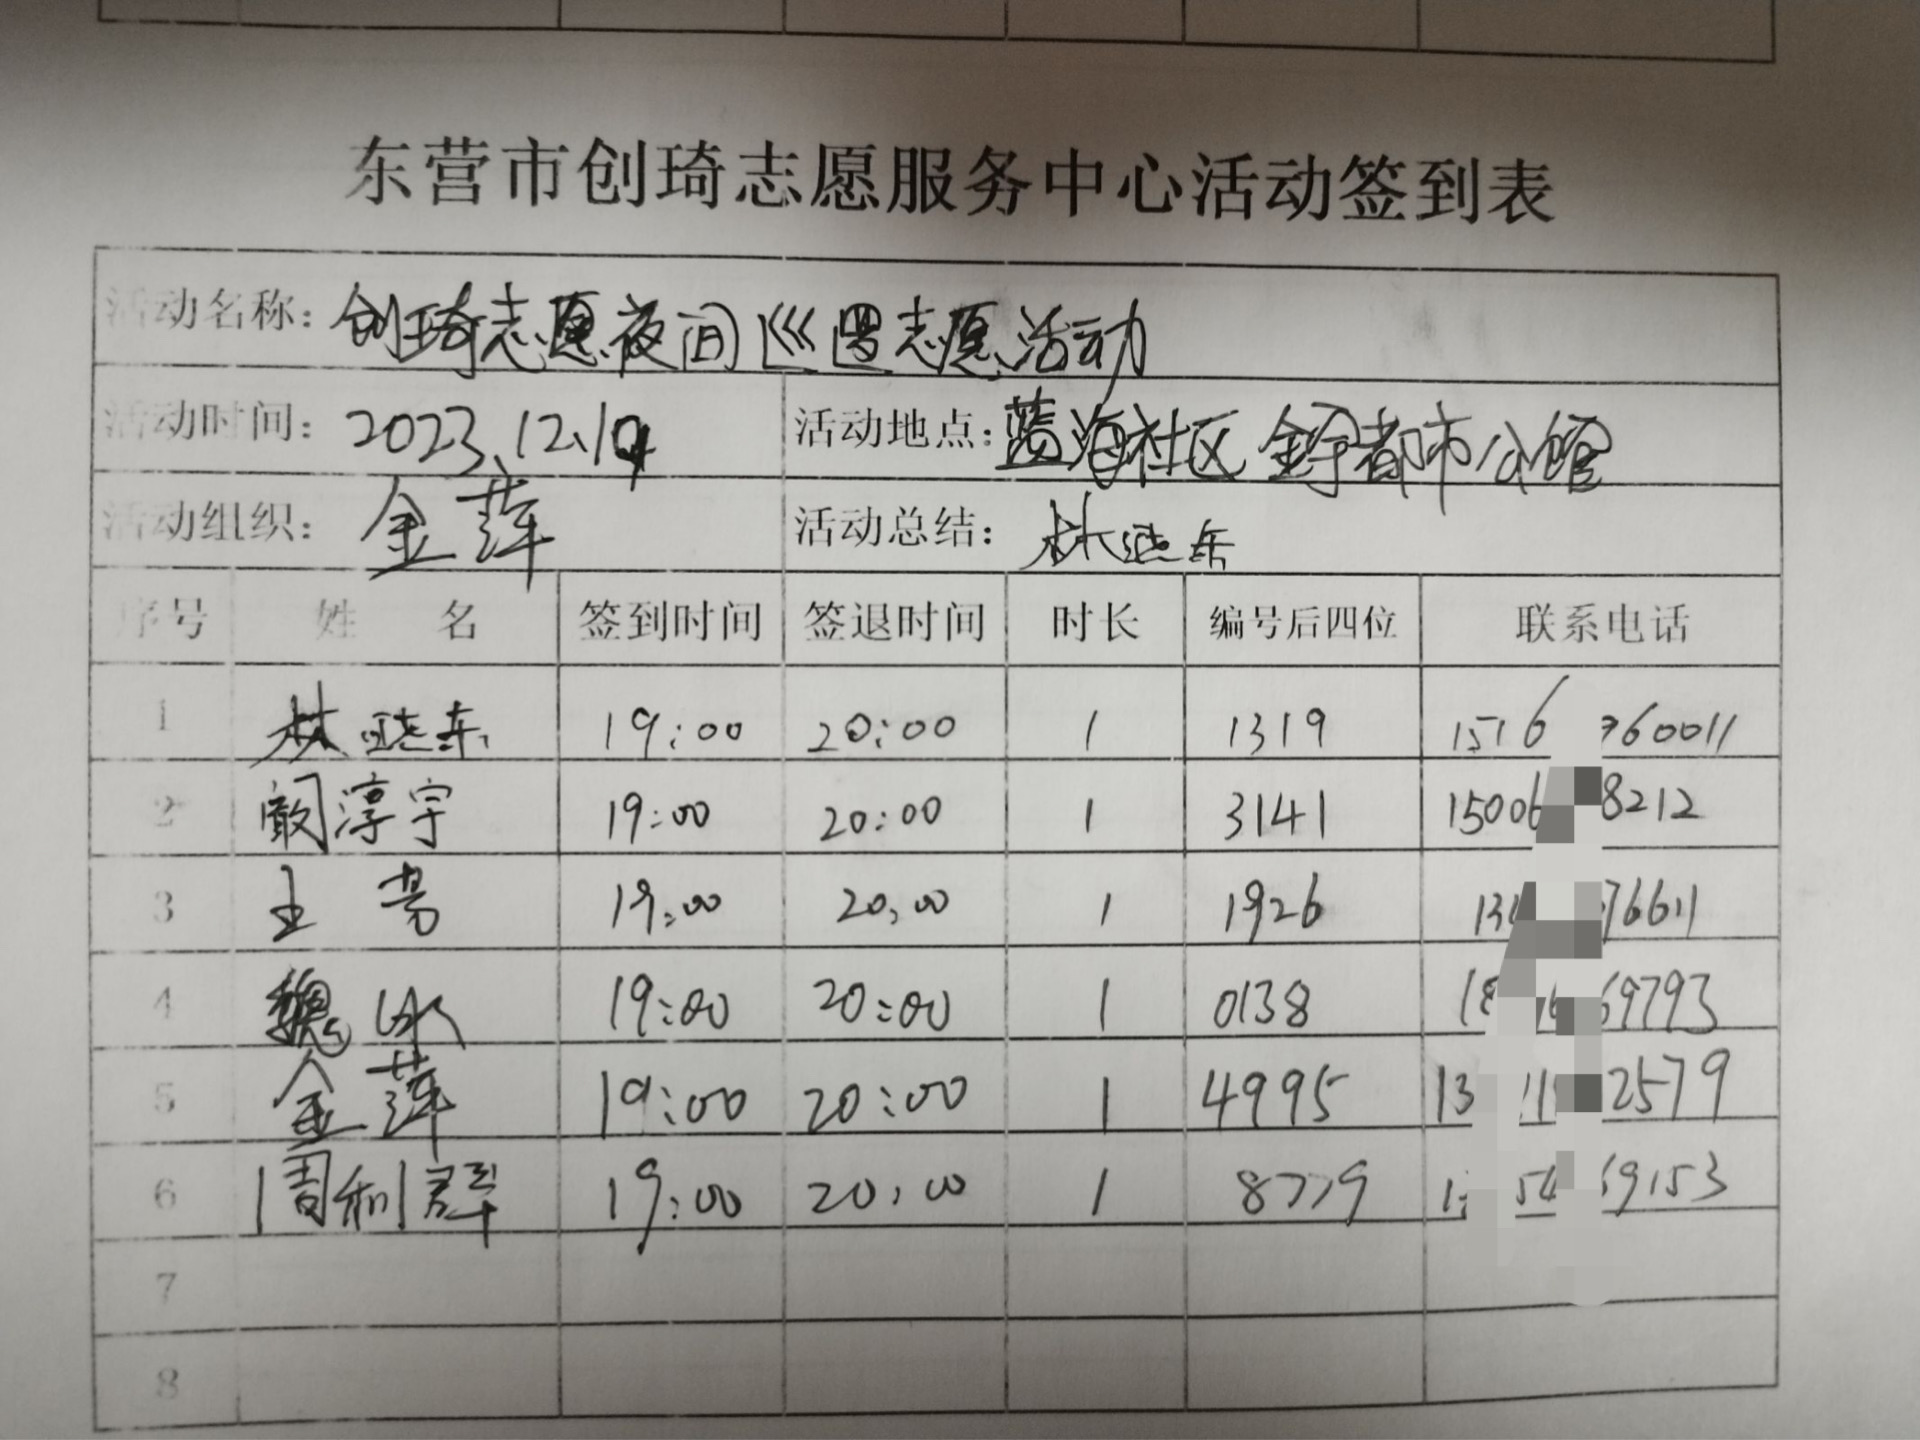 东营市创琦志愿服务中心活动签到表
活动名称：创琦志愿夜间巡逻志愿活动
活动时间：2023.12.19 活动地点：蓝海社区 金宇都市公馆
活动组织：金萍 活动总结：林晓东
序号 姓 名 签到时间 签退时间 时长 编号后四位 联系电话
1 林晓东 19:00 20:00 1 1319 1516 760011
2 阚淳宇 19:00 20:00 1 3141 15006 8212
3 王 19:00 20:00 1 1926 13 76611
4 魏冰 19:00 20:00 1 0138 18 69793
5 金萍 19:00 20:00 1 4995 13 2579
6 周利群 19:00 20:00 1 8779 1 54 69153
7
8